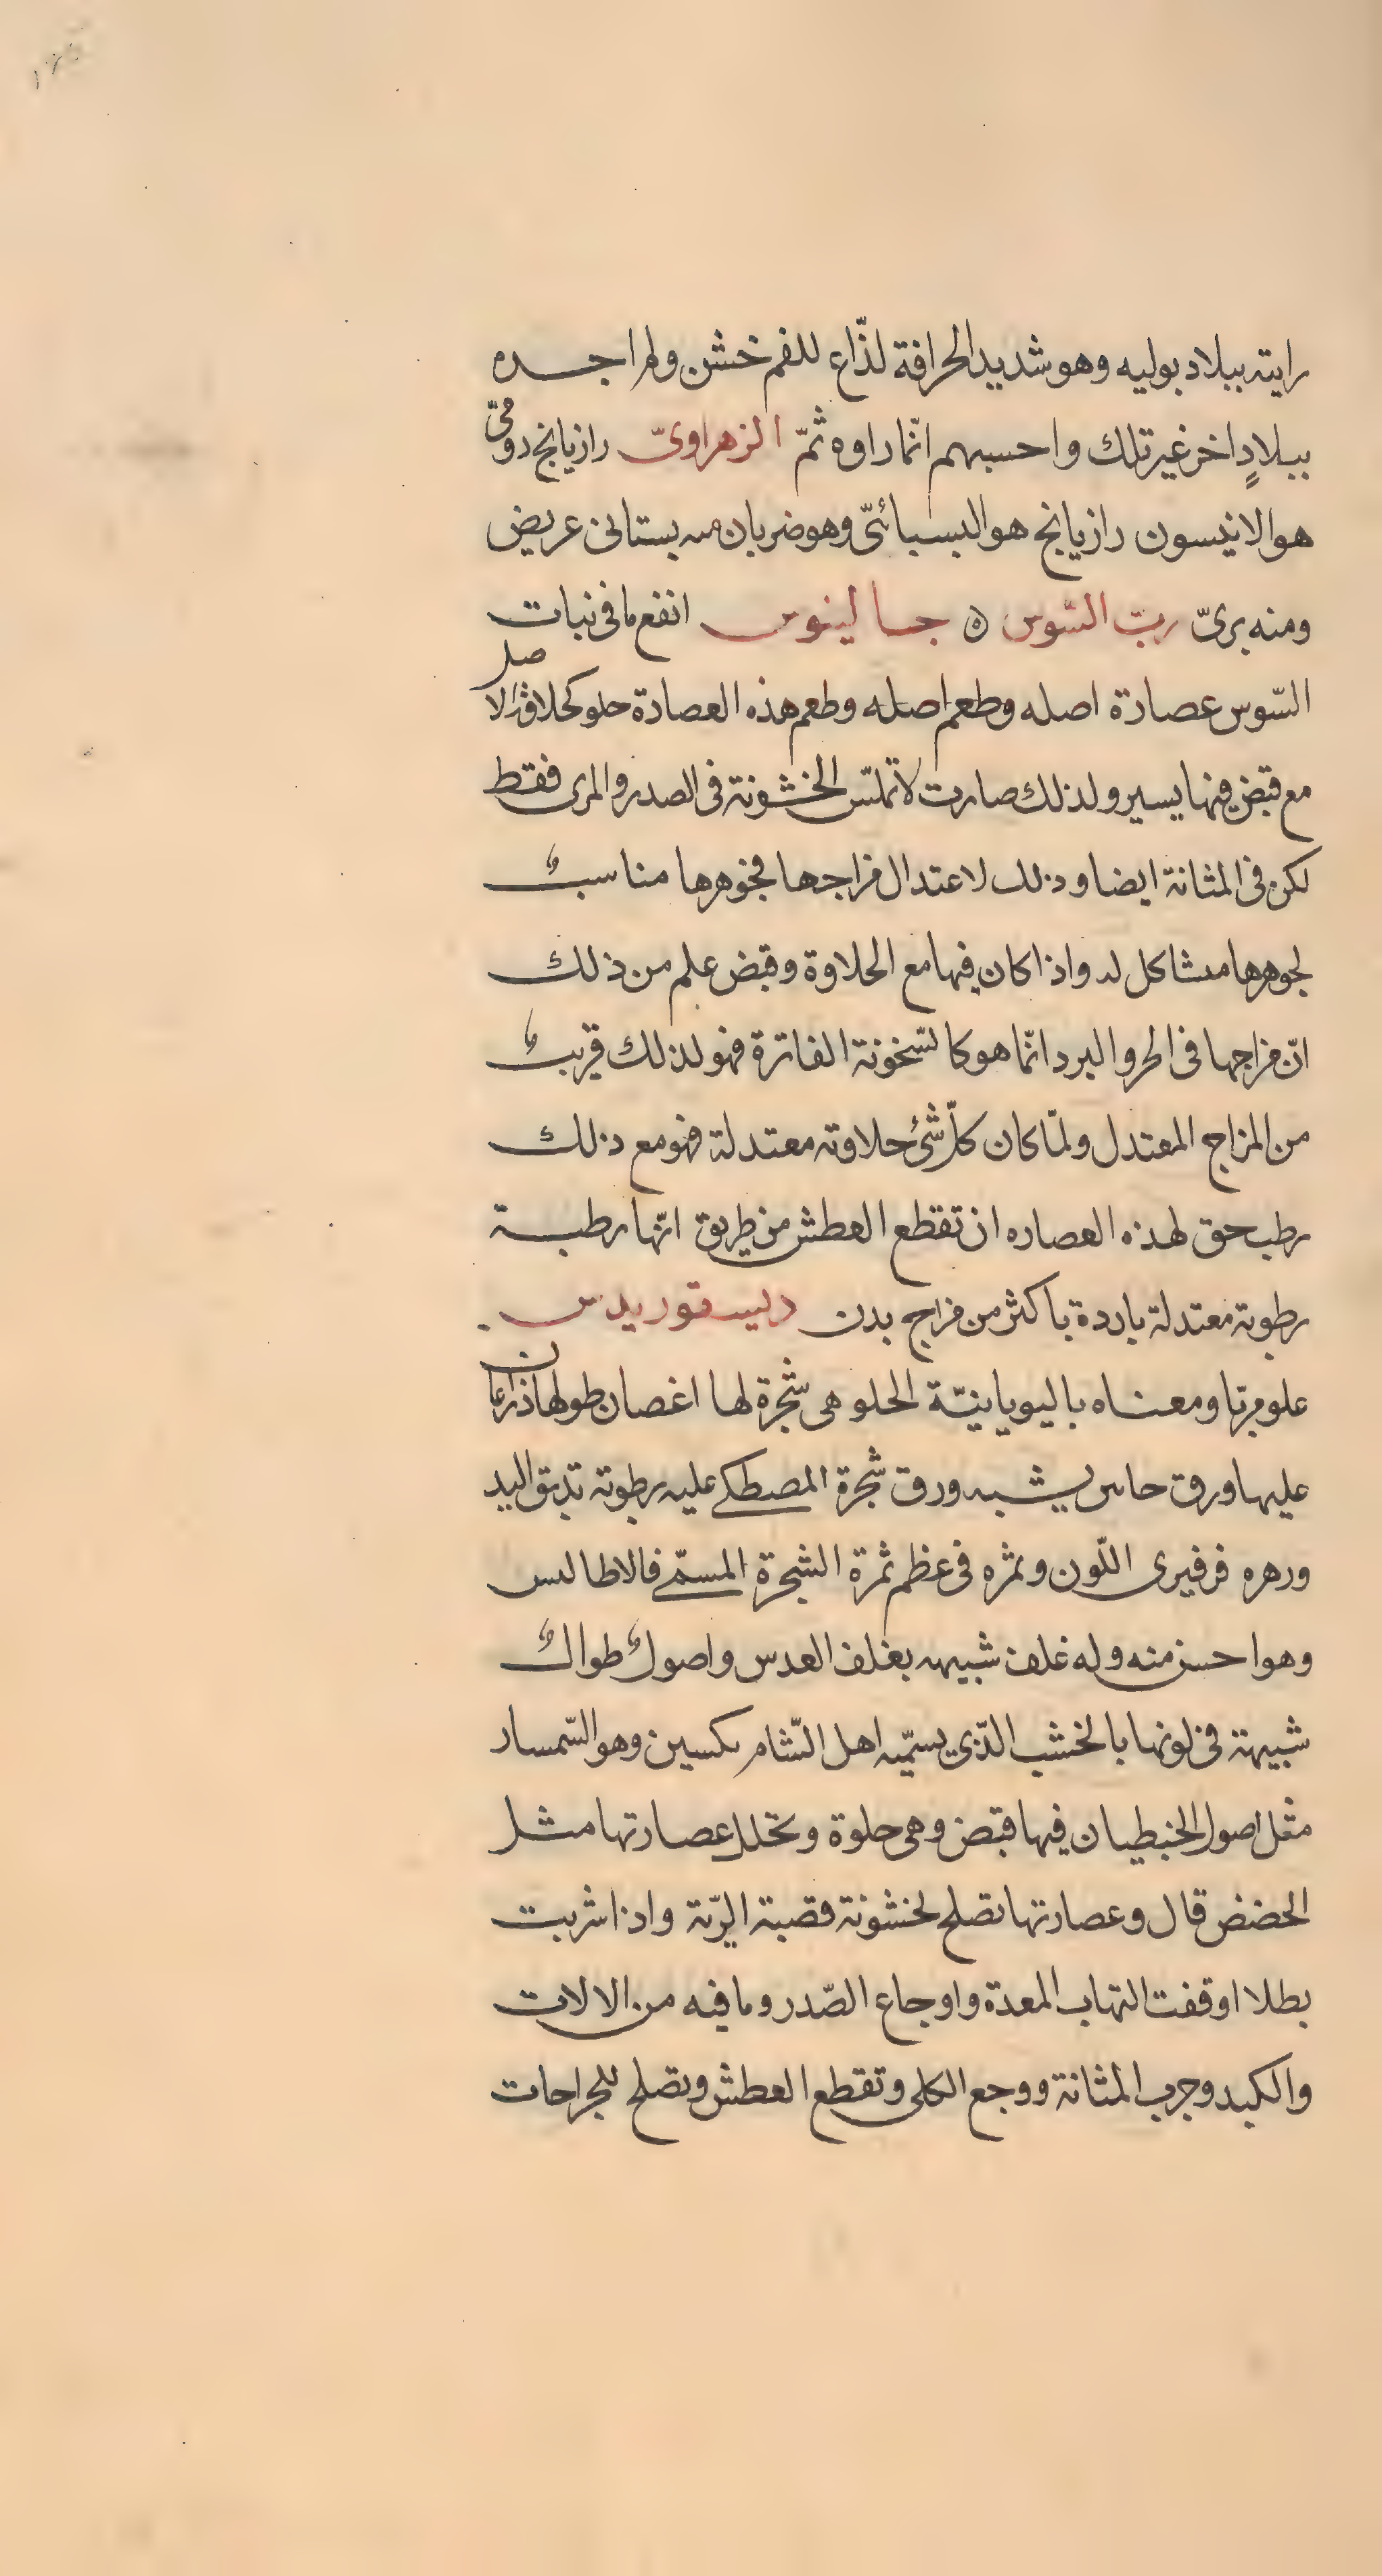 رايته ببلاد بوليه وهو شديد الحرافة لذّاع للفم خشن ولم اجده
ببلادٍ اخر غير تلك واحسبهم انّما راوه ثمّ الزهراوىّ رازيانج رومىّ
هو الانيسون رازيانج هو البسبائىّ وهو ضربان منه بستانى عريض
ومنه برىّ ربّ السّوس ه جالينوس انفع ما فى نبات
السّوس عصارة اصله وطعم اصله وطعم هذه العصارة حلو كحلاوة الاصل
مع قبض فيها يسير ولذلك صارت لا تملّس الخشونة فى الصدر والمرى فقط
لكن فى المثانة ايضا وذلك لاعتدال مزاجها فجوهرها مناسبٌ
لجوهرها مشاكل له واذا كان فيها مع الحلاوة وقبض علم من ذلك
انّ مزاجها فى الحر والبرد انّما هو كالسّخونة الفاترة فهو لذلك قريبٌ
من المزاج المعتدل ولمّا كان كلّ شئ حلاوته معتدلة فهو مع ذلك
رطب حق لهذه العصاره ان تقطع العطش من طريق انّها رطبة
رطوبة معتدلة باردة باكثر من مزاج بدن ديسقوريدس
علومرتا ومعناه باليويانيّة الحلو هى شجرة لها اغصان طولها ذراعان
عليها ورق حاس يشبه ورق شجرة المصطكى عليه رطوبة تدبق اليد
وزهره فرفيرى اللّون وثمره فى عظم ثمرة الشجرة المسمّى فالاطالس
وهو احسن منه وله غلف شبيهه بغلف العدس واصولٌ طوالٌ
شبيهة فى لونها بالخشب الذّى يسمّيه اهل الشّام بكسين وهو الشّمسار
مثل اصول الجنطيان فيها قبض وهى حلوة وتحلل عصارتها مثل
الحضض قال وعصارتها تصلح لخشونة قصبة الرّئة واذا شربت
بطلا اوقفت التهاب المعدة واوجاع الصّدر وما فيه من الالات
والكبد وجرب المثانة ووجع الكلى وتقطع العطش وتصلح للجراحات